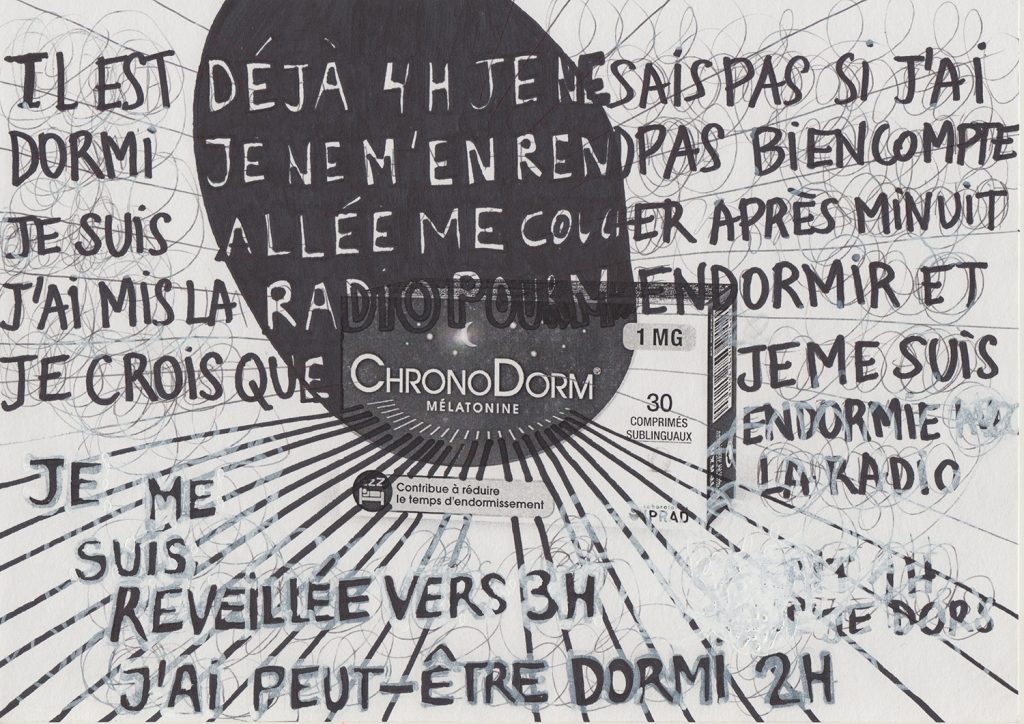 IL EST DÉJÀ 4H JE NE SAIS PAS SI J'AI
DORMI JE NE M'EN REND PAS BIEN COMPTE
JE SUIS ALLÉE ME COUCHER APRÈS MINUIT
J'AI MIS LA RADIO POUR M'ENDORMIR ET
JE CROIS QUE JE ME SUIS
ENDORMIE
LA RADIO
1 MG
CHRONODORM®
MÉLATONINE
30
COMPRIMÉS
SUBLINGUAUX
ZZZ
Contribue à réduire
le temps d'endormissement
JE ME
SUIS
REVEILLÉE VERS 3H
DORS
J'AI PEUT-ÊTRE DORMI 2H